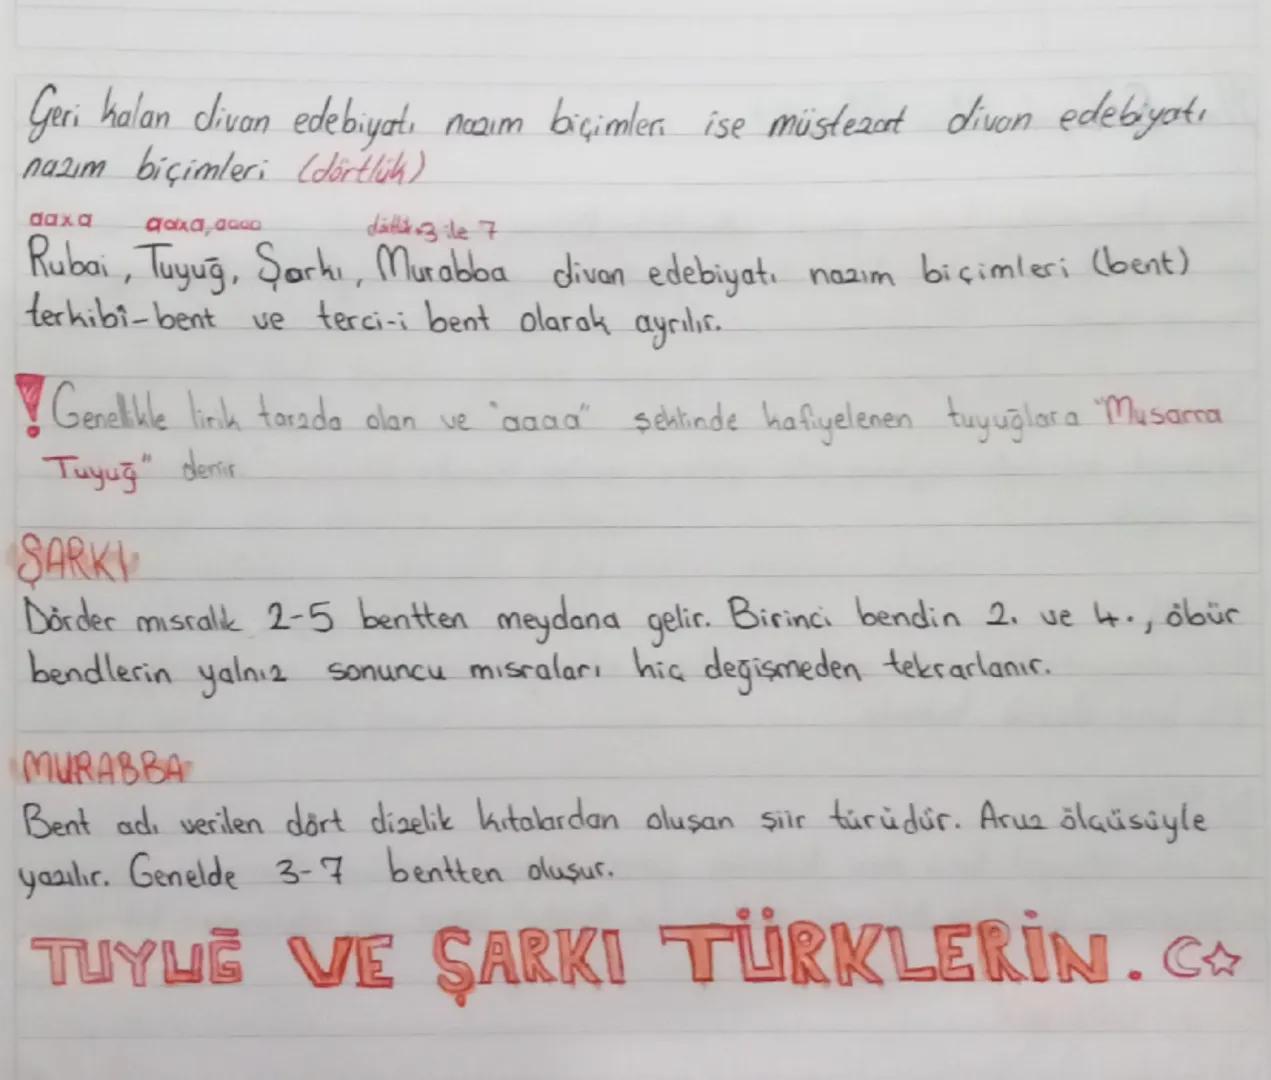 Geri kalan divan edebiyatı nazım biçimleri ise müstezat divan edebiyatı
nazım biçimleri (dörtlük)
aaxa aaxa, aaaa dörtlük 3 ile 7
Rubai, Tuyuğ, Şarkı, Murabba divan edebiyatı nazım biçimleri (bent)
terkibî-bent ve terci-i bent olarak ayrılır.
! Genellikle lirik tarzda olan ve "aaaa" şeklinde kafiyelenen tuyuğlara "Musarra
Tuyuğ" denir
ŞARKI
Dörder mısralık 2-5 bentten meydana gelir. Birinci bendin 2. ve 4., öbür
bendlerin yalnız sonuncu mısraları hiç değişmeden tekrarlanır.
MURABBA
Bent adı verilen dört dizelik kıtalardan oluşan şiir türüdür. Aruz ölçüsüyle
yazılır. Genelde 3-7 bentten oluşur.
TUYUĞ VE ŞARKI TÜRKLERİN.